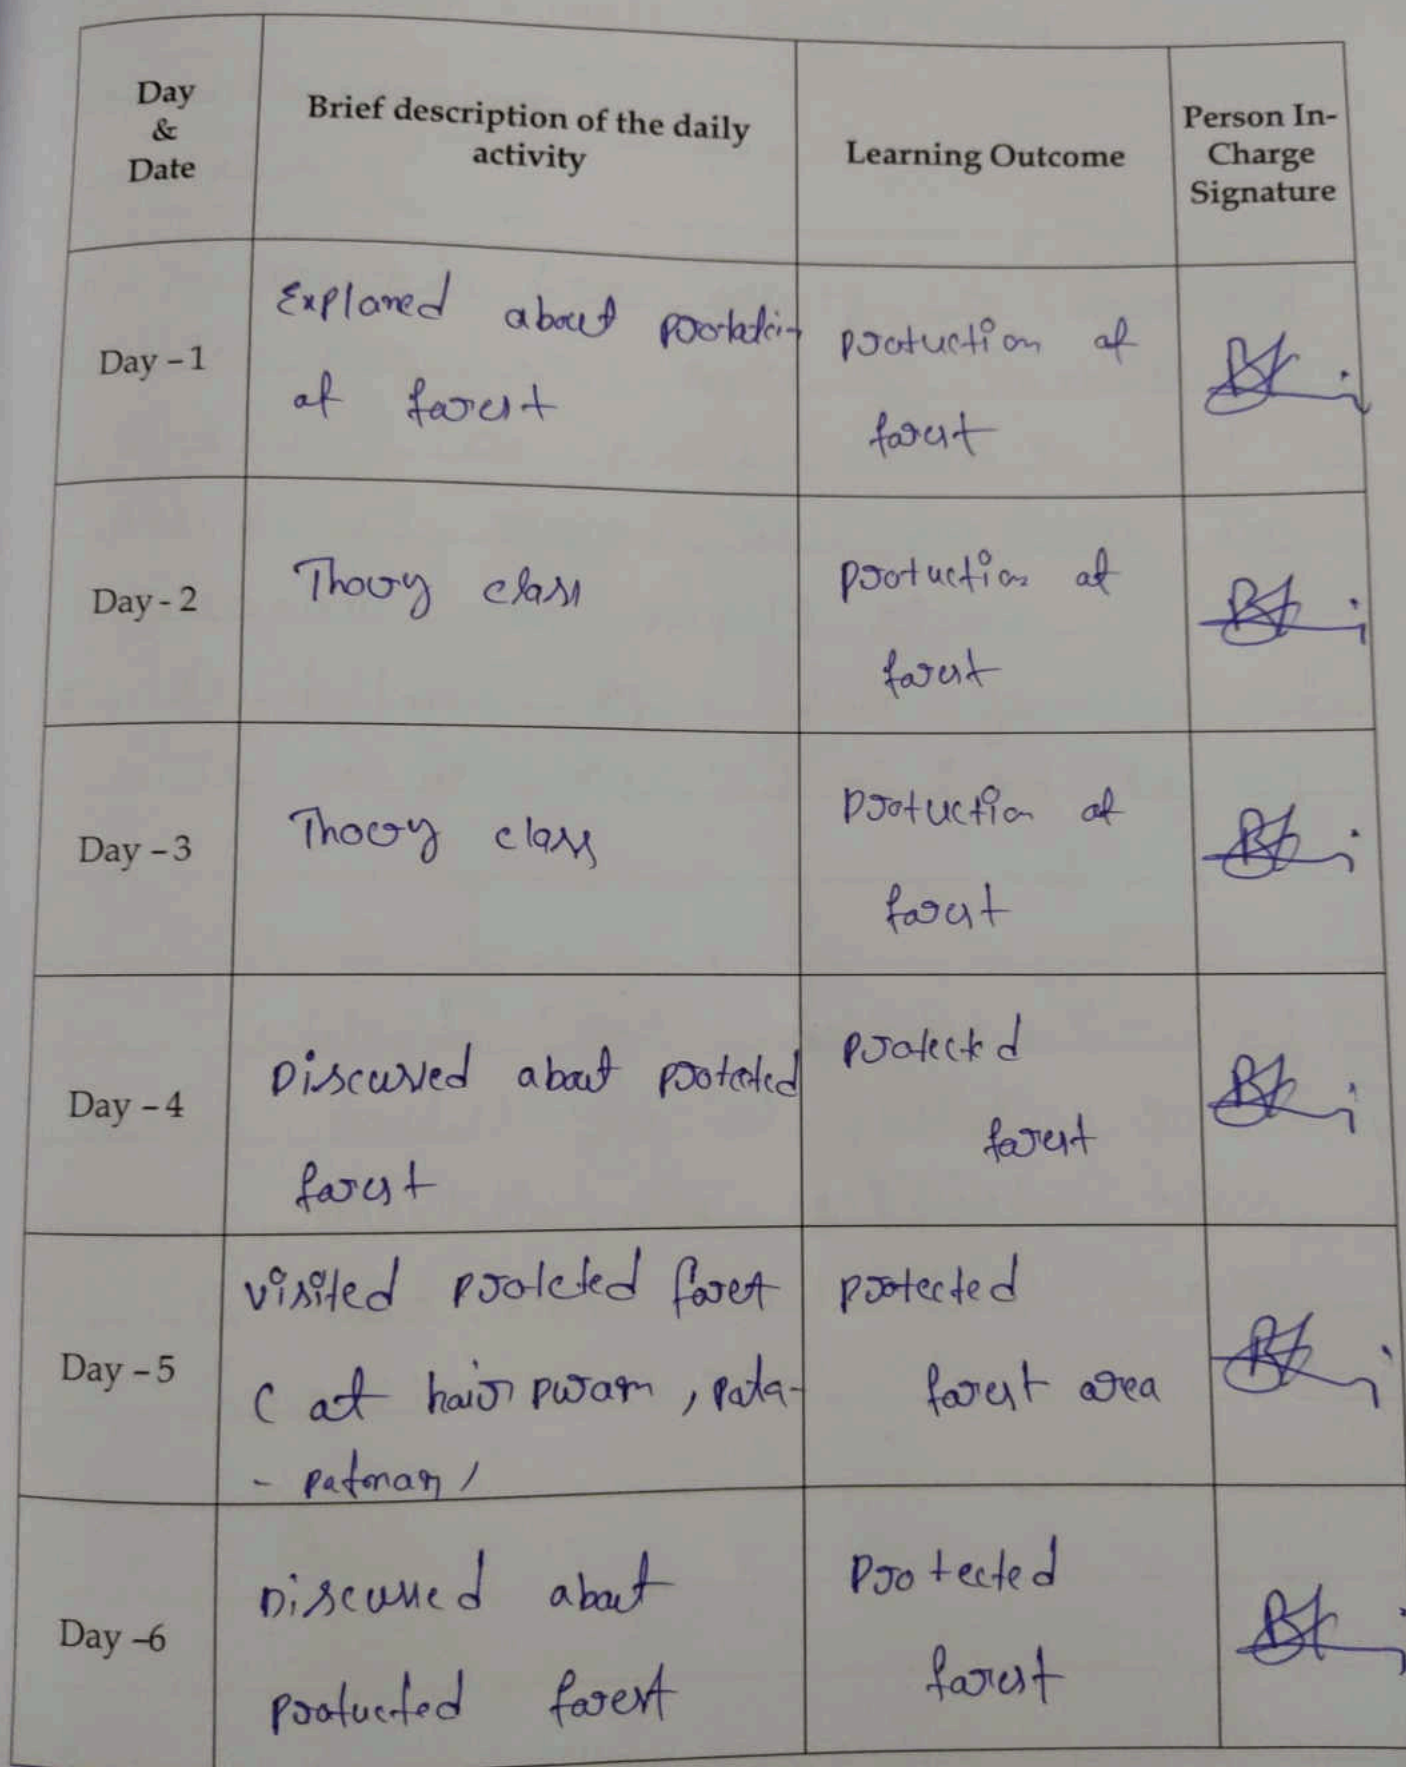 Day
&
Date
Brief description of the daily
activity
Learning Outcome
Person In-
Charge
Signature
Day – 1
Explaned about
of forest
protuction of
forest
Day - 2
Thoory class
protuction of
forest
Day – 3
Thoory class
protuction of
forest
Day – 4
Discussed about protected
forest
protected
forest
Day – 5
visited protected foret
( at hair puram , pata-
- patonam /
protected
forest area
Day –6
Discussed about
protucted forest
protected
forest